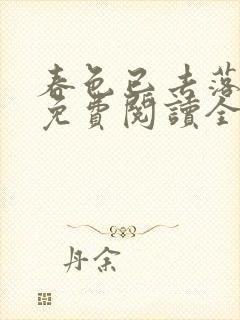 春色已去落
免費閱讀全
丹余